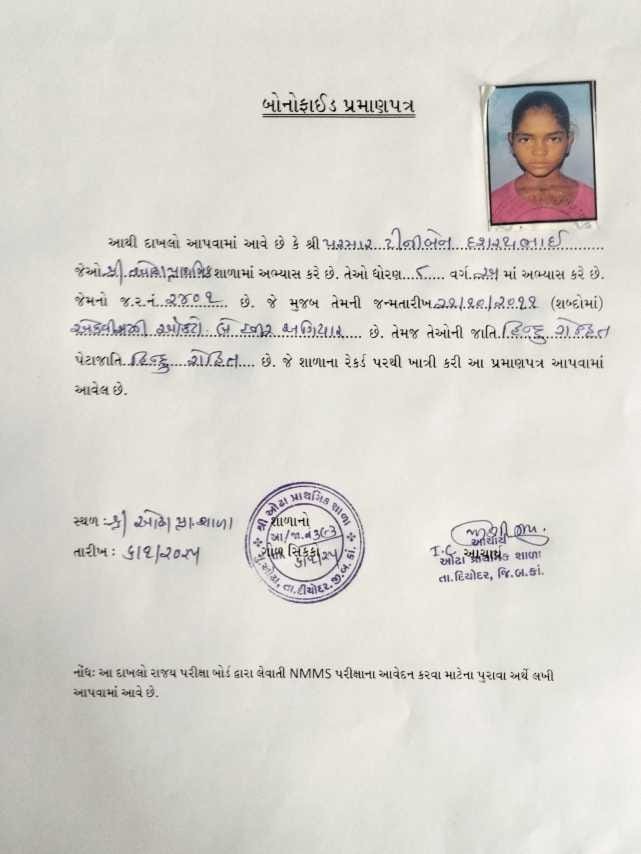 બોનોફાઈડ પ્રમાણપત્ર
આથી દાખલો આપવામાં આવે છે કે શ્રી પરમાર ટીનીબેન દશરથભાઈ
જેઓ શ્રી ઓઢા પ્રાથમિક શાળામાં અભ્યાસ કરે છે. તેઓ ધોરણ વર્ગ માં અભ્યાસ કરે છે.
જેમનો જ.ર.નં. ૨૪૦૧ છે. જે મુજબ તેમની જન્મતારીખ (શબ્દોમાં)
બે હજાર અગિયાર છે. તેમજ તેઓની જાતિ હિન્દુ રોહિત
પેટાજાતિ હિન્દુ રોહિત છે. જે શાળાના રેકર્ડ પરથી ખાત્રી કરી આ પ્રમાણપત્ર આપવામાં
આવેલ છે.
સ્થળ : શ્રી ઓઢા પ્રા. શાળા
તારીખ : ૬/૧/૨૦૨૫
શ્રી ઓઢા પ્રાથમિક શાળા
શાળાનો
ગોળ સિક્કો
મુ.ઓઢા, તા.દીયોદર, જી.બ.કાં.
આચાર્ય
I.C. આચાર્ય
ઓઢા પ્રાથમિક શાળા
તા.દિયોદર, જિ.બ.કાં.
નોંધઃ આ દાખલો રાજય પરીક્ષા બોર્ડ દ્વારા લેવાતી NMMS પરીક્ષાના આવેદન કરવા માટેના પુરાવા અર્થે લખી
આપવામાં આવે છે.